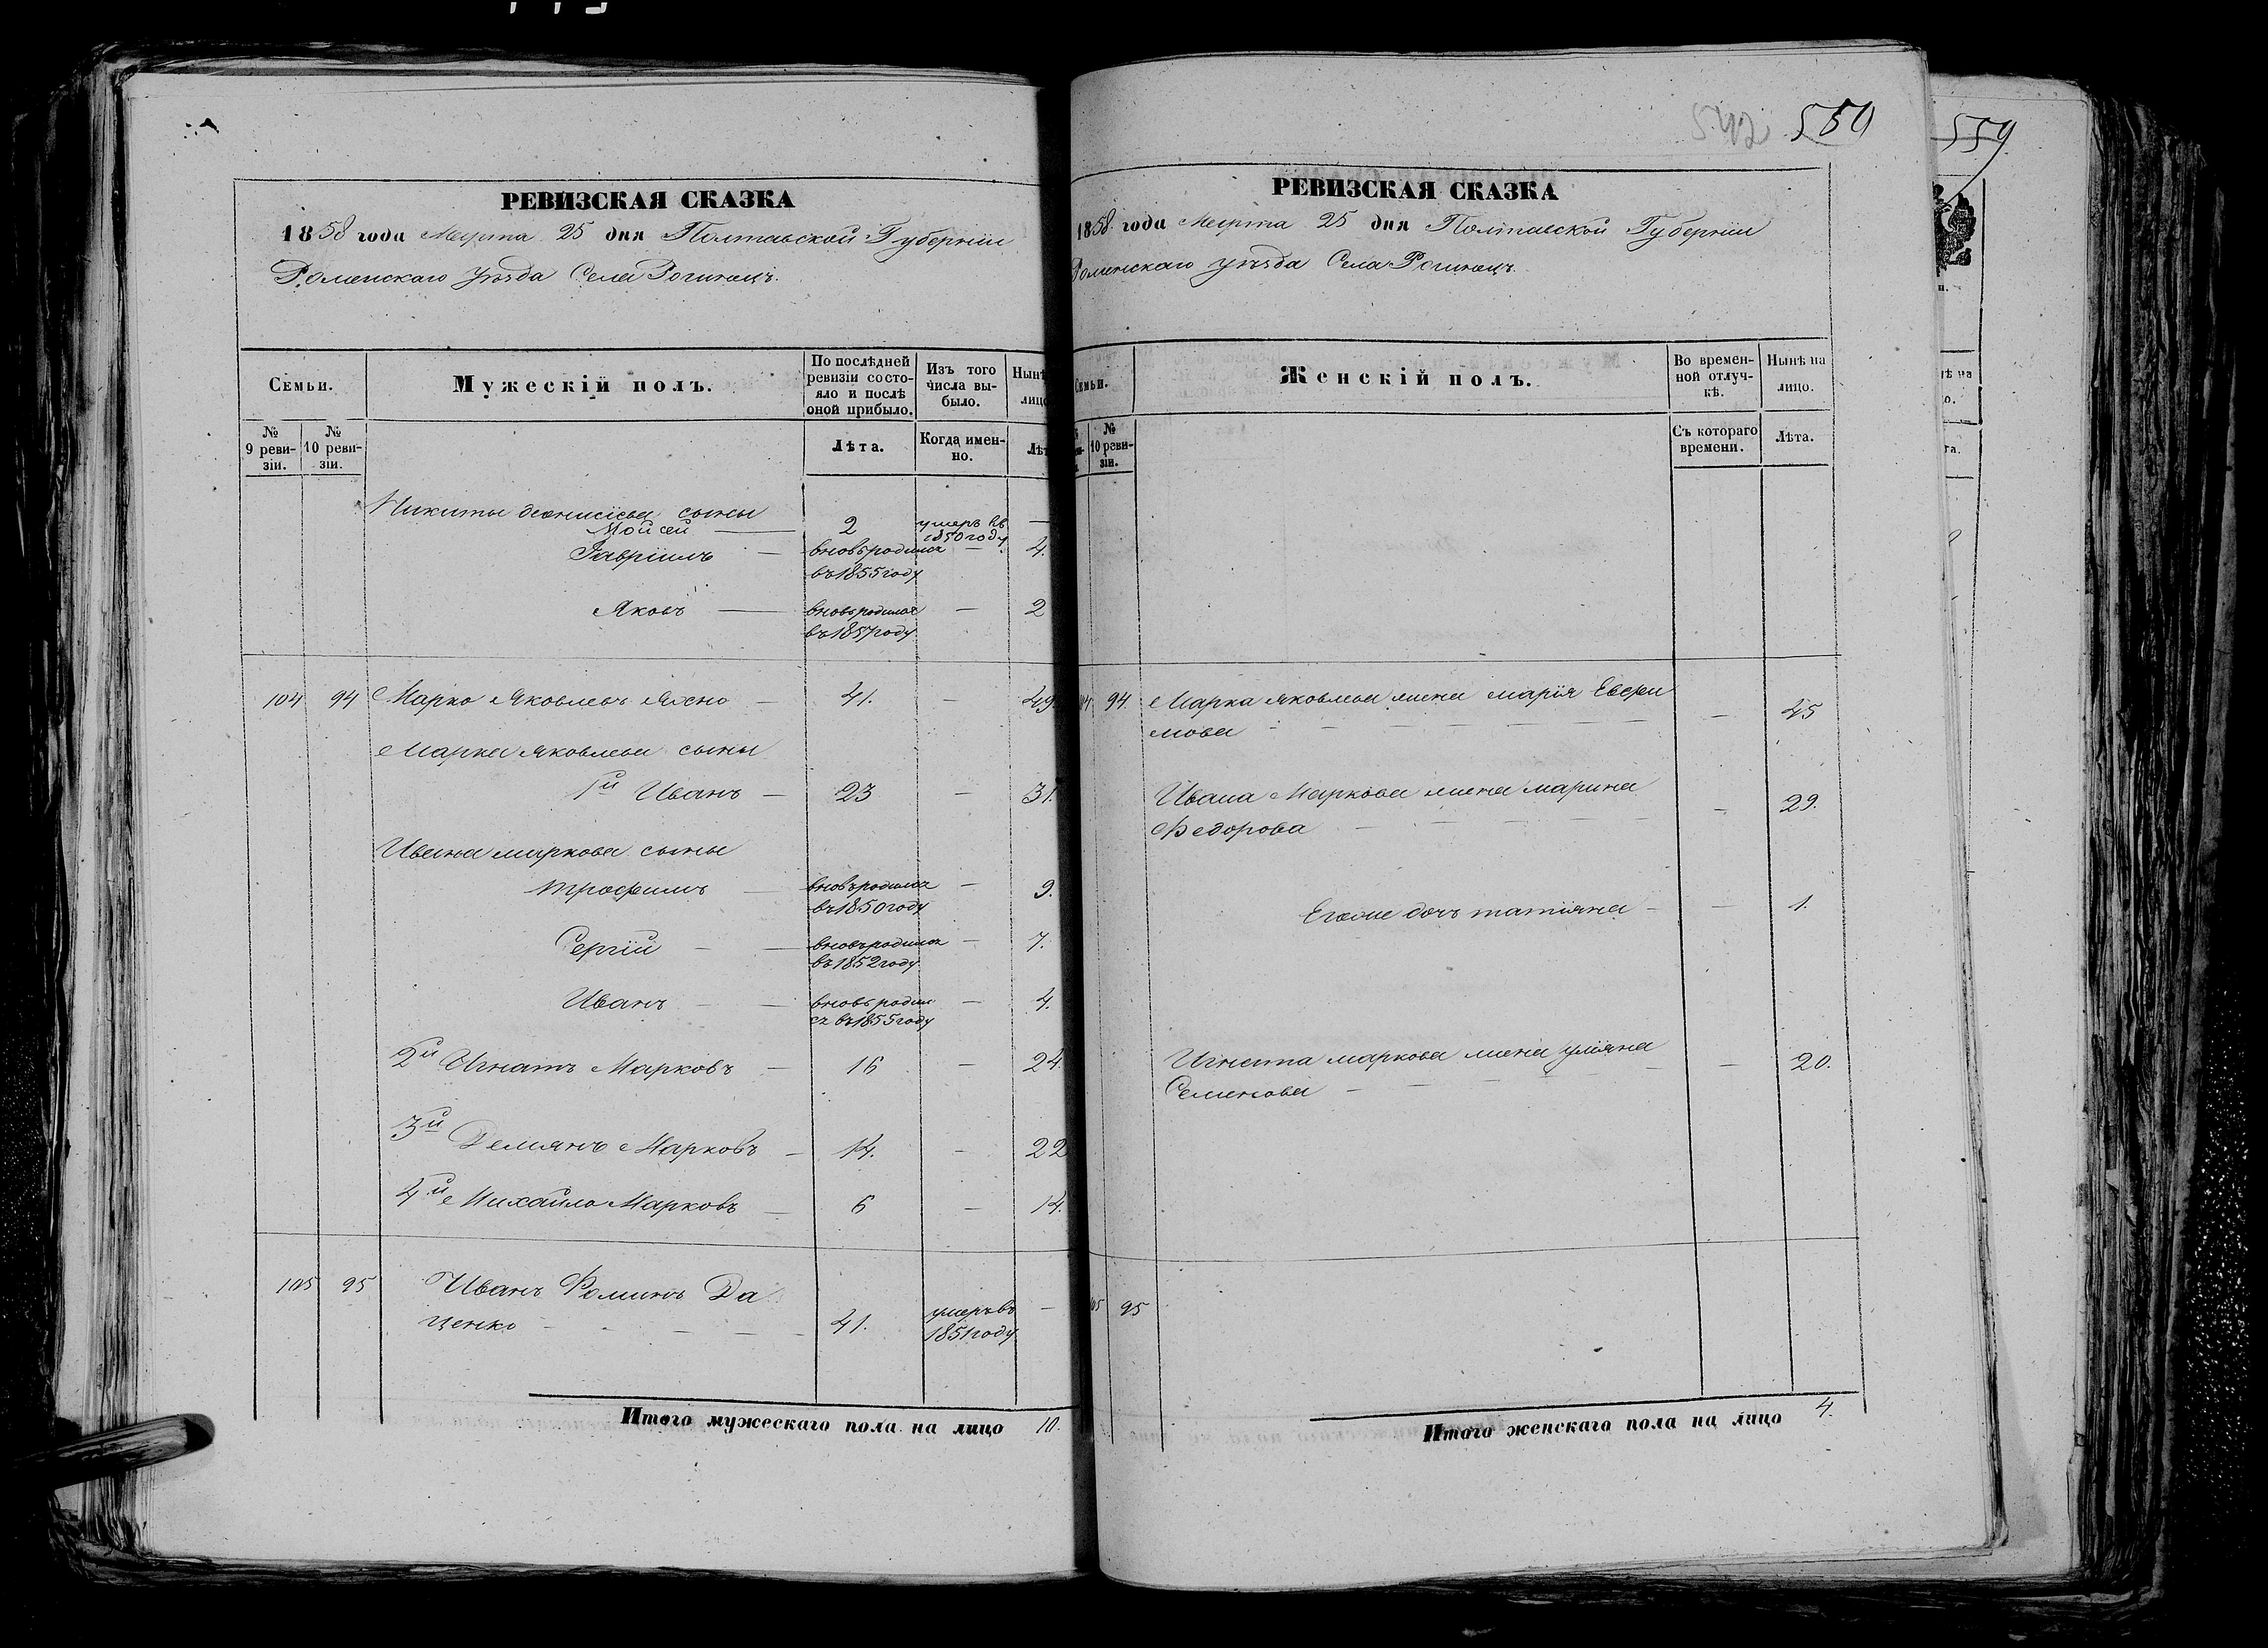 РЕВИЗСКАЯ СКАЗКА
1858 года Марта 25 дня Полтавской Губерніи
Роменскаго уѣзда Села Рогинецъ.
Семьи.
Мужескій полъ.
По послѣдней ревизіи состояло и послѣ оной прибыло.
Изъ того числа выбыло.
Нынѣ
лицо
№ 9 ревизіи.
№ 10 ревизіи.
Лѣта.
Когда именно.
Лѣт
Никиты деонисіева сыны
Мойсей — 2 умеръ въ 1850 году —
Гавріилъ — вновь родился въ 1855 году — 4.
Яковъ — вновь родился въ 1857 году — 2
104 94 Марко Яковлевъ Яхно — 41. — 49
Марка Яковлева сыны
1й Иванъ — 23 — 31.
Ивана маркова сыны
трофимъ — вновь родился въ 1850 году — 9.
Сергій — вновь родился въ 1852 году — 7.
Иванъ — вновь родился въ 1855 году — 4.
2й Игнатъ Марковъ — 16 — 24.
3й Демянъ Марковъ — 14. — 22
4й Михайло Марковъ — 6 — 14.
105 95 Иванъ Фоминъ Да
ценко — 41. умеръ въ 1851 году —
Итого мужескаго пола на лицо 10.
542 550
РЕВИЗСКАЯ СКАЗКА
1858 года Марта 25 дня Полтавской Губерніи
Роменскаго уѣзда Села Рогинецъ.
Семьи.
Женскій полъ.
Во временной отлучкѣ.
Нынѣ на лицо.
№ 10 ревизіи.
Съ котораго времени.
Лѣта.
94 Марка яковлева жена марія Евфи
мова — 45
Ивана Маркова жена марина
Федорова — 29.
Егоже дочь татіяна — — 1.
Игната маркова жена уліяна
Семенова — — 20.
95
Итого женскаго пола на лицо 4.
559